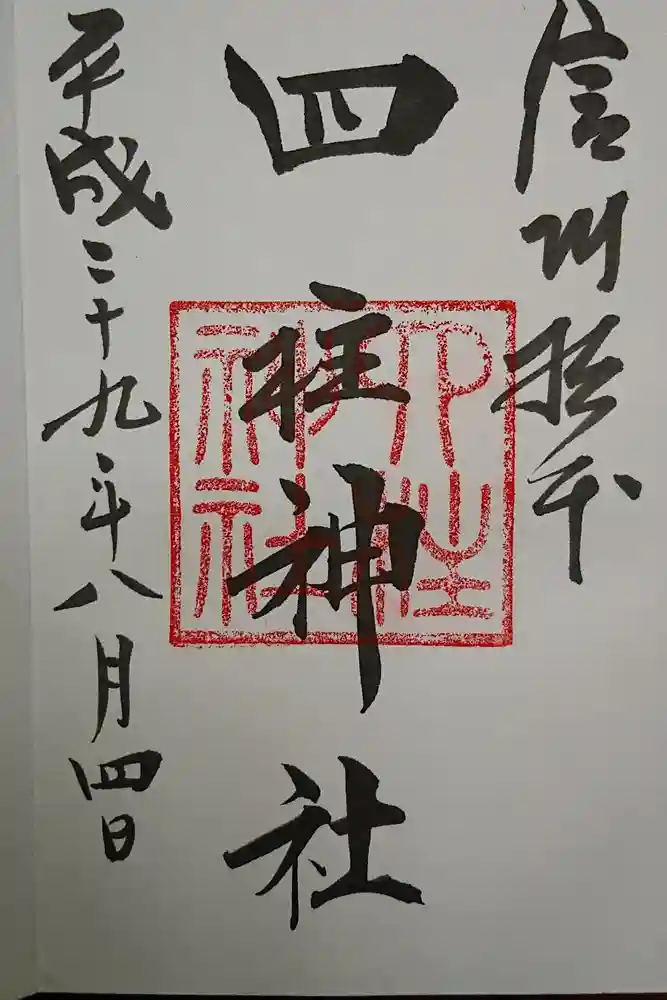 信州松本
四柱神社
四柱神社
平成二十九年八月四日